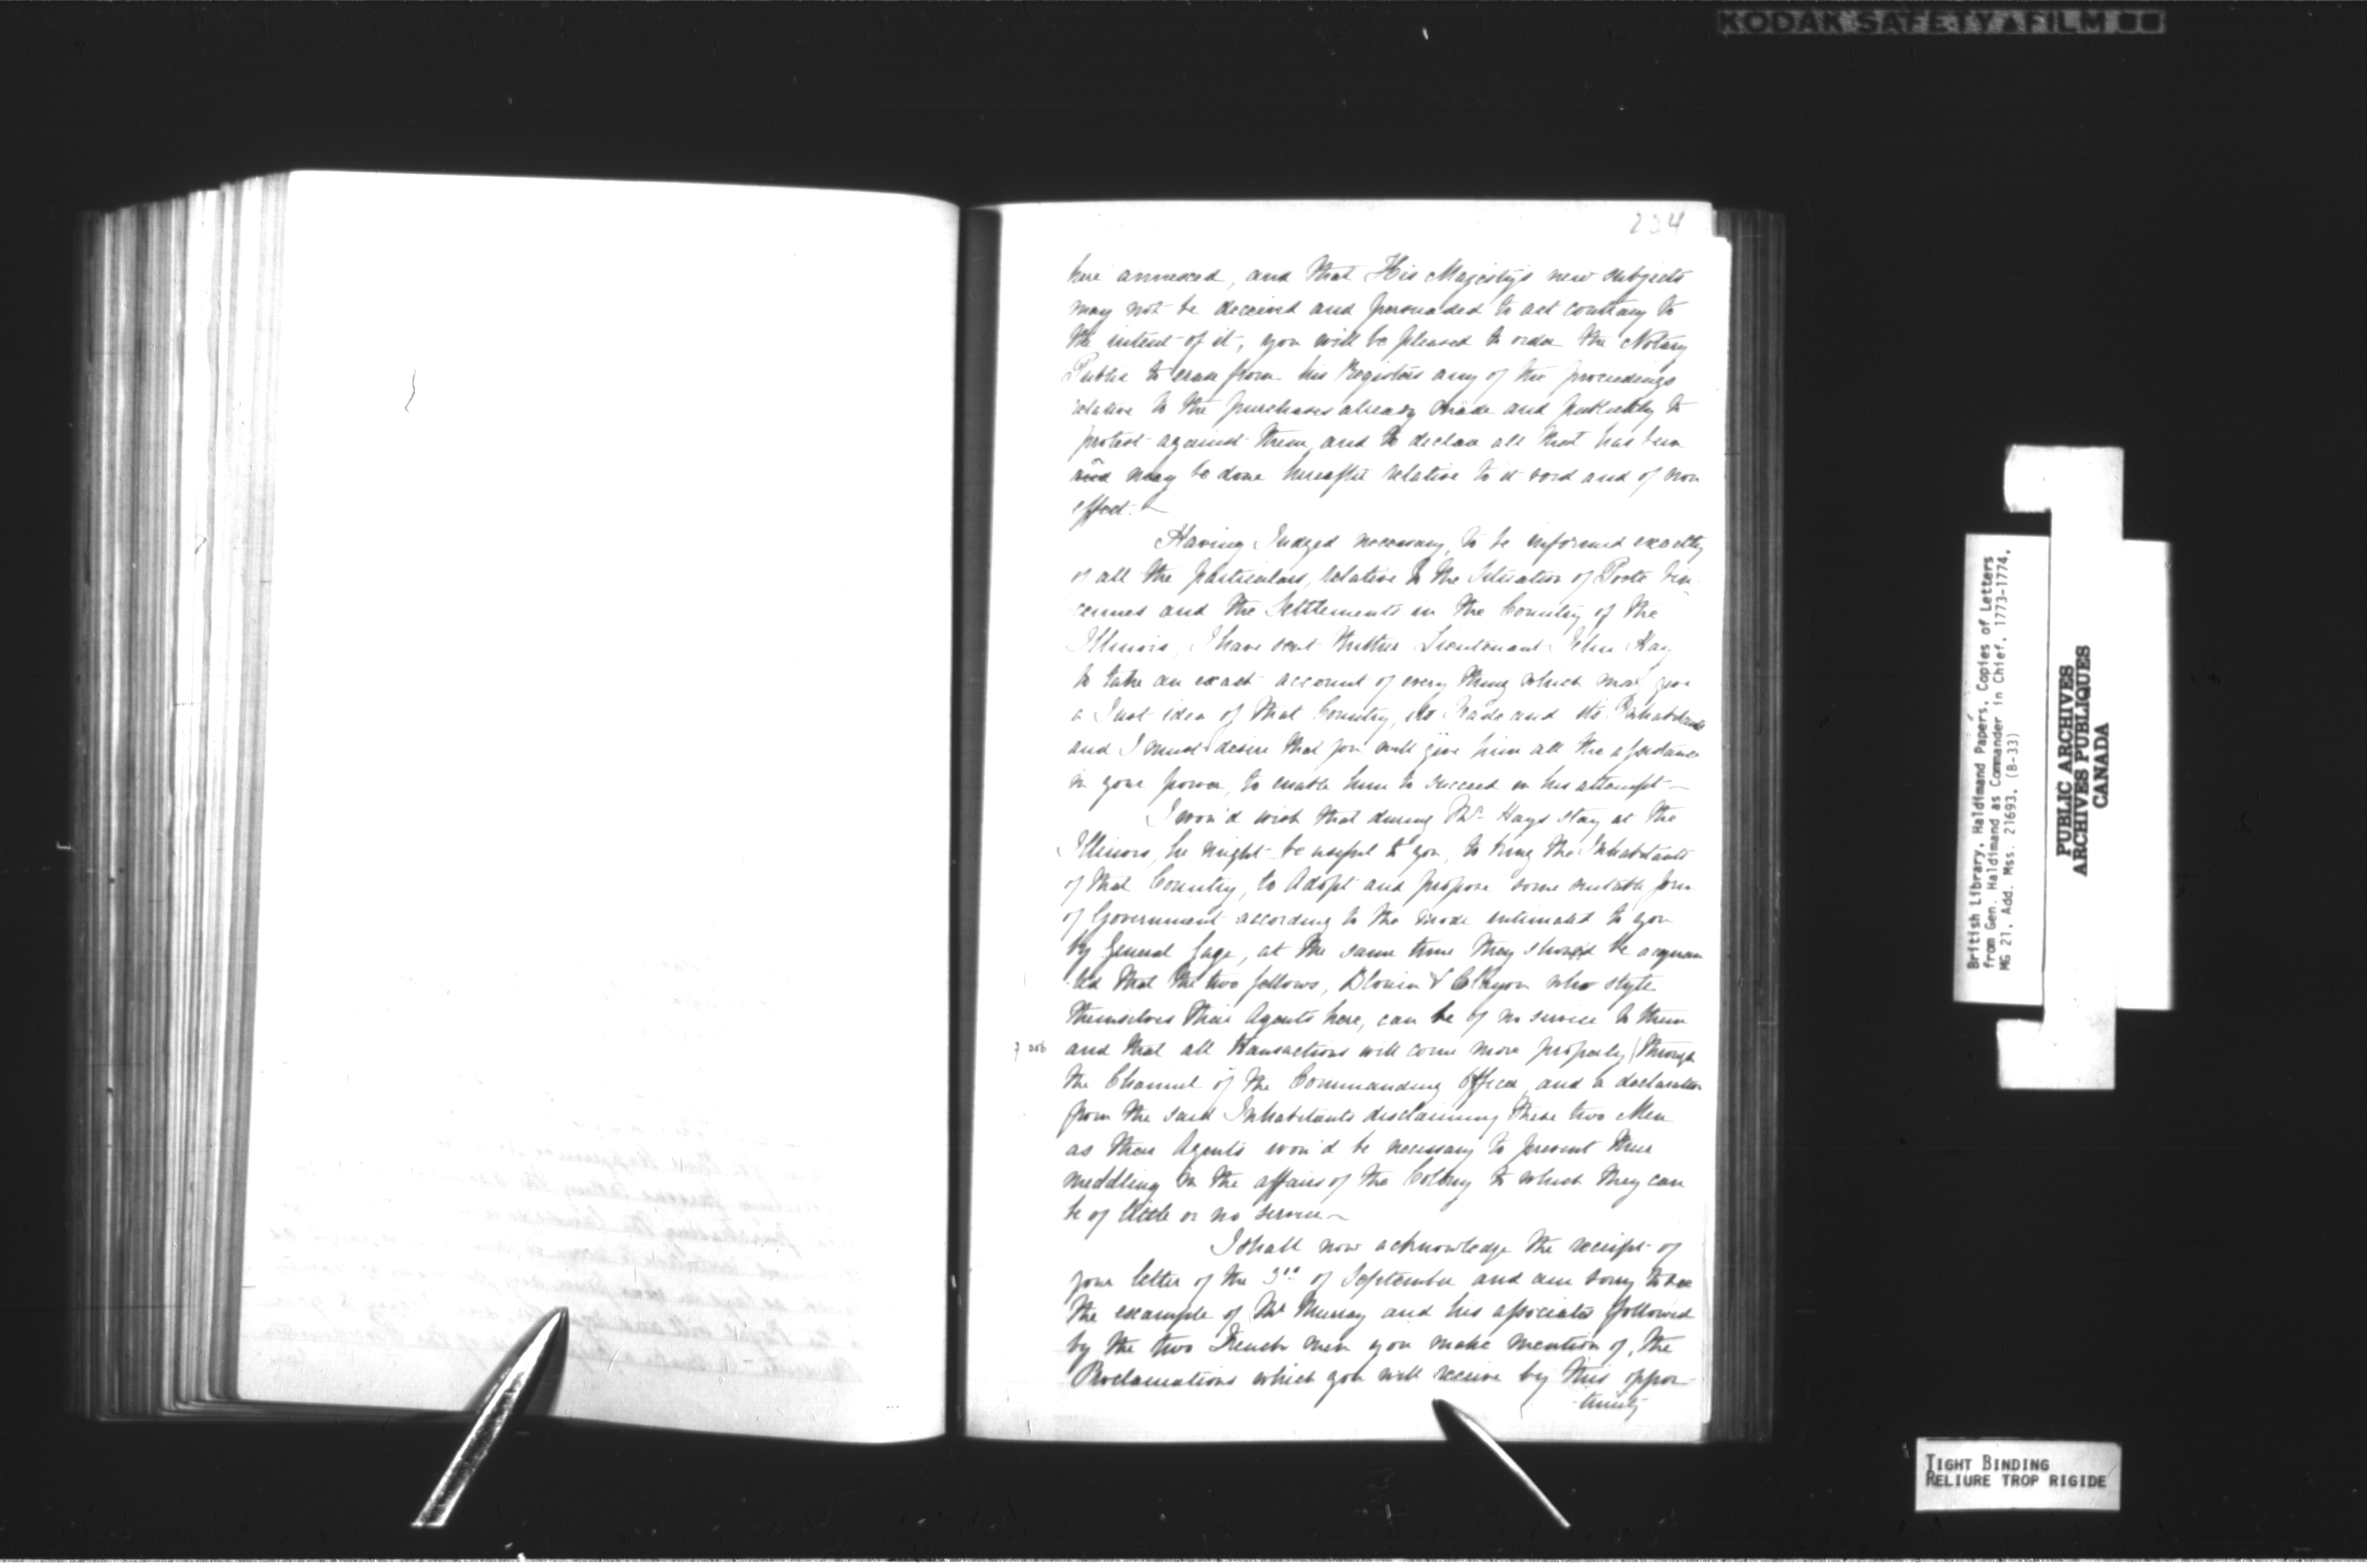 KODAK SAFETY FILM
234
here annexed, and that His Majesty's new subjects
may not be deceived and persuaded to act contrary to
the intent of it, you will be pleased to order the Notary
Public to erase from his Registers any of the proceedings
relative to the purchases already made and publickly to
protest against them, and to declare all that has been
and may be done hereafter relative to it void and of non
effect.—
Having Judged necessary, to be informed exactly
of all the particulars, relative to the Situation of Poste Vin-
cennes and the Settlements in the Country of the
Illinois, I have sent thither Lieutenant John Hay
to take an exact account of every thing which may give
a Just idea of that Country, its Trade and its Inhabitants
and I must desire that you will give him all the assistance
in your power, to enable him to succeed in his attempt—
I wou'd wish that during Mr. Hays stay at the
Illinois, he might be useful to you, to bring the Inhabitants
of that Country, to Adopt and propose some suitable form
of Government according to the mode intimated to you
by General Gage, at the same time they shou'd be acquain
ted that the two fellows, Blouin & Clajon who style
themselves their Agents here, can be of no service to them
and that all transactions will come more properly through
the Channel of the Commanding Officer, and a declaration
from the said Inhabitants disclaiming these two Men
as their Agents wou'd be necessary to prevent their
meddling in the affairs of the Colony to which they can
be of little or no service—
I shall now acknowledge the receipt of
your letter of the 3rd of September and am sorry to see
the example of Mr Murray and his associates followed
by the two French men you make mention of, the
Proclamations which you will receive by this oppor-
tunity
British Library, Haldimand Papers, Copies of Letters
from Gen. Haldimand as Commander in Chief, 1773-1774,
MG 21, Add. Mss. 21693, (B-33)
PUBLIC ARCHIVES
ARCHIVES PUBLIQUES
CANADA
TIGHT BINDING
RELIURE TROP RIGIDE